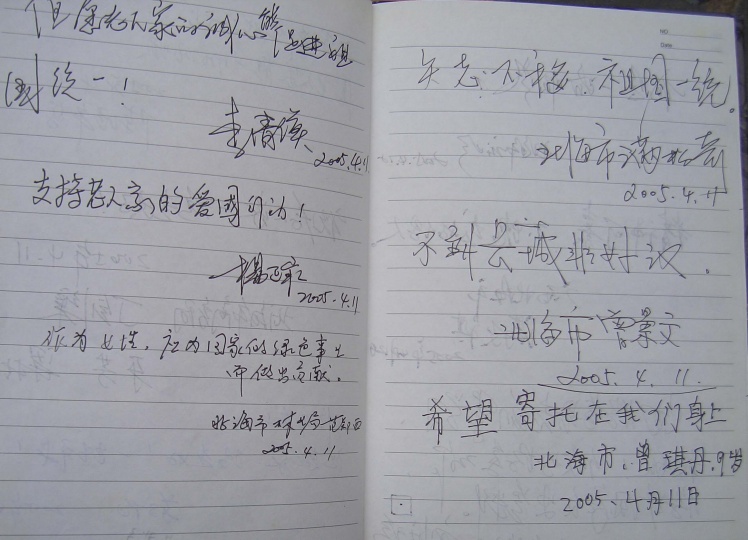 但愿老人家的诚心能促进祖
国统一！
2005.4.11
支持老人家的爱国行为！
2005.4.11
作为女性，应为国家的绿色事业
中做出贡献。
北海市林业局
2005.4.11
NO
Date
矢志不移 祖国一统。
北海市
2005.4.11
不到 城非好汉.
北海市 曾景文
2005.4.11.
希望寄托在我们身上
北海市、曾琪丹.9岁
2005.4月11日